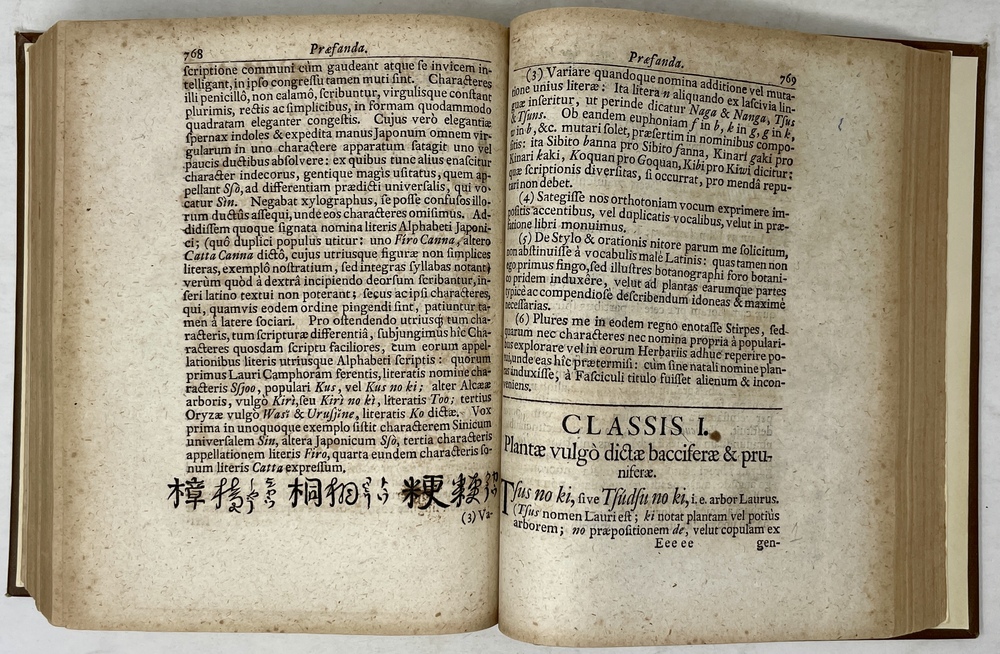 768
Præfanda.
scriptione communi cùm gaudeant atque se invicem in-
telligant, in ipso congressu tamen muti sint. Characteres
illi penicillô, non calamô, scribuntur, virgulisque constant
plurimis, rectis ac simplicibus, in formam quodammodo
quadratam eleganter congestis. Cujus verò elegantiæ
spernax indoles & expedita manus Japonum omnem vir-
gularum in uno charactere apparatum satagit uno vel
paucis ductibus absolvere: ex quibus tunc alius enascitur
character indecorus, gentique magis usitatus, quem ap-
pellant Ssò, ad differentiam prædicti universalis, qui vo-
catur Sin. Negabat xylographus, se posse confusos illo-
rum ductûs assequi, unde eos characteres omisimus. Ad-
didissem quoque signata nomina literis Alphabeti Japoni-
ci; (quô duplici populus utitur: uno Firo Canna, altero
Catta Canna dictô, cujus utriusque figuræ non simplices
literas, exemplô nostratium, sed integras syllabas notant)
verùm quòd à dextrâ incipiendo deorsum scribantur, in-
seri latino textui non poterant; secus ac ipsi characteres,
qui, quamvis eodem ordine pingendi sint, patiuntur ta-
men à latere sociari. Pro ostendendo utriusq; tum cha-
racteris, tum scripturæ differentiâ, subjungimus hîc Cha-
racteres quosdam scriptu faciliores, cum eorum appel-
lationibus literis utriusque Alphabeti scriptis: quorum
primus Lauri Camphoram ferentis, literatis nomine cha-
racteris Ssjoo, populari Kus, vel Kus no ki; alter Alcææ
arboris, vulgò Kirì, seu Kirì no kì, literatis Too; tertius
Oryzæ vulgò Wasi & Urusjine, literatis Ko dictæ. Vox
prima in unoquoque exemplo sistit characterem Sinicum
universalem Sin, altera Japonicum Ssò, tertia characteris
appellationem literis Firo, quarta eundem characteris so-
num literis Catta expressum.
樟 桐 粳
(3) Va-
Præfanda.
769
(3) Variare quandoque nomina additione vel muta-
tione unius literæ: Ita litera n aliquando ex lascivia lin-
guæ inseritur, ut perinde dicatur Naga & Nanga, Tsus
& Tsuns. Ob eandem euphoniam f in b, k in g, g in k,
w in b, &c. mutari solet, præsertim in nominibus compo-
sitis: ita Sibito banna pro Sibito fanna, Kinari gaki pro
Kinari kaki, Koquan pro Goquan, Kibi pro Kiwi dicitur;
quæ scriptionis diversitas, si occurrat, pro mendâ repu-
tari non debet.
(4) Sategisse nos orthotoniam vocum exprimere im-
positis accentibus, vel duplicatis vocalibus, velut in præ-
fatione libri monuimus.
(5) De Stylo & orationis nitore parum me solicitum,
non abstinuisse à vocabulis malè Latinis: quas tamen non
ego primus fingo, sed illustres botanographi foro botani-
co pridem induxêre, velut ad plantas earumque partes
typicè ac compendiosè describendum idoneas & maximè
necessarias.
(6) Plures me in eodem regnô enotasse Stirpes, sed-
quarum nec characteres nec nomina propria à populari-
bus explorare vel in eorum Herbariis adhuc reperire po-
tui, unde eas hîc prætermisi: cùm sine natali nomine plan-
tas induxisse, à Fasciculi titulo fuisset alienum & incon-
veniens.
CLASSIS I.
Plantæ vulgò dictæ bacciferæ & pru-
niferæ.
Tsus no ki, sive Tsudsu no ki, i. e. arbor Laurus.
(Tsus nomen Lauri est; ki notat plantam vel potiùs
arborem; no præpositionem de, velut copulam ex
Eee ee
gen-